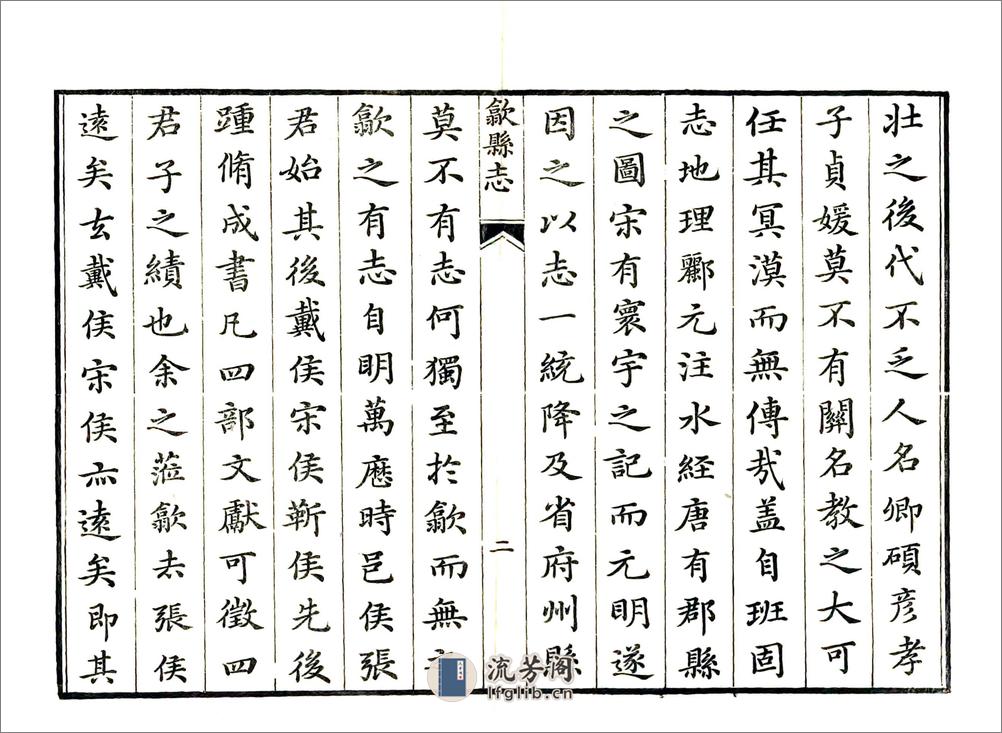 壯之後代不乏人名卿碩彥孝
子貞媛莫不有關名教之大可
任其冥漠而無傳哉蓋自班固
志地理酈元注水經唐有郡縣
之圖宋有寰宇之記而元明遂
因之以志一統降及省府州縣
歙縣志
二
莫不有志何獨至於歙而無
歙之有志自明萬歷時邑侯張
君始其後戴侯宋侯靳侯先後
踵脩成書凡四部文獻可徵四
君子之績也余之蒞歙去張侯
遠矣去戴侯宋侯亦遠矣即其
流芳阁
lfglib.cn